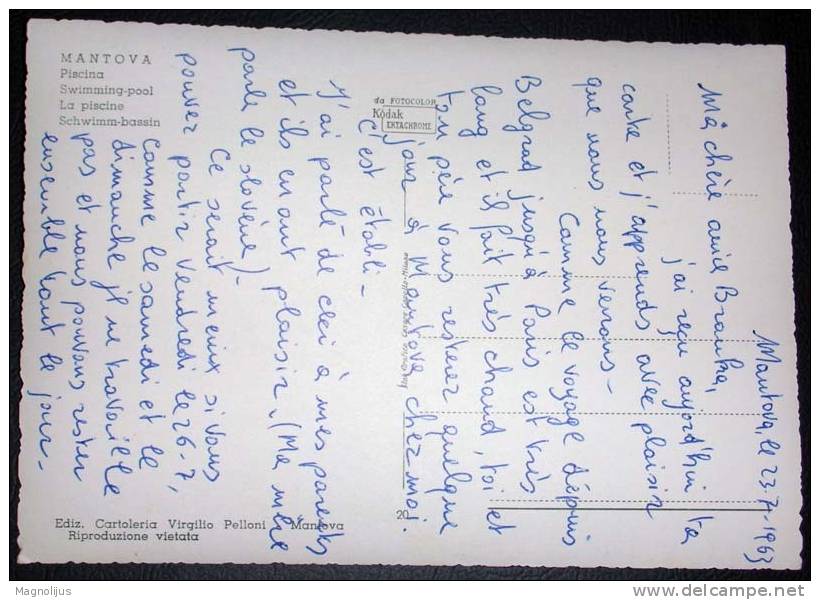 Mantova, le 23.7.1963
Mà chère amie Branka,
j'ai reçu aujord'hui ta
carte et j'apprends avec plaisir
que nous nous verrons -
Comme le voyage dépuis
Belgrad jusqu'à Paris est très
long et il fait très chaud, toi et
ton père vous resterez quelque
jour à Mantova chez moi.
C'est établi -
J'ai parlé de ceci à mes parents
et ils en ont plaisir. (Ma mère
parle le slovène) -
Ce serait mieux si vous
pouvez partir vendredi le 26-7,
comme le samedi et le
dimanche je ne travaille
pas et nous pouvons rester
ensemble tout le jour -
MANTOVA
Piscina
Swimming-pool
La piscine
Schwimm-bassin
da FOTOCOLOR
Kodak
EKTACHROME
20
Ediz. Cartoleria Virgilio Pelloni - Mantova
Riproduzione vietata
Magnolijus
delcampe.net